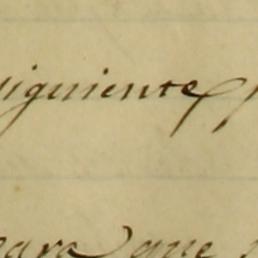 siguiente
para que